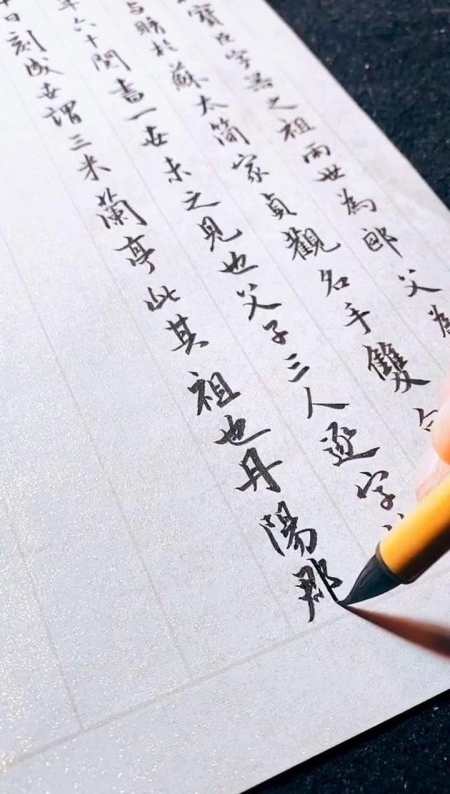 字
之祖兩世為郎父為
勝於蘇太簡家貞觀名手雙勾
六十閱書一世未之見也父子三人逐字
日刻成世謂三米蘭亭此其祖也丹陽那